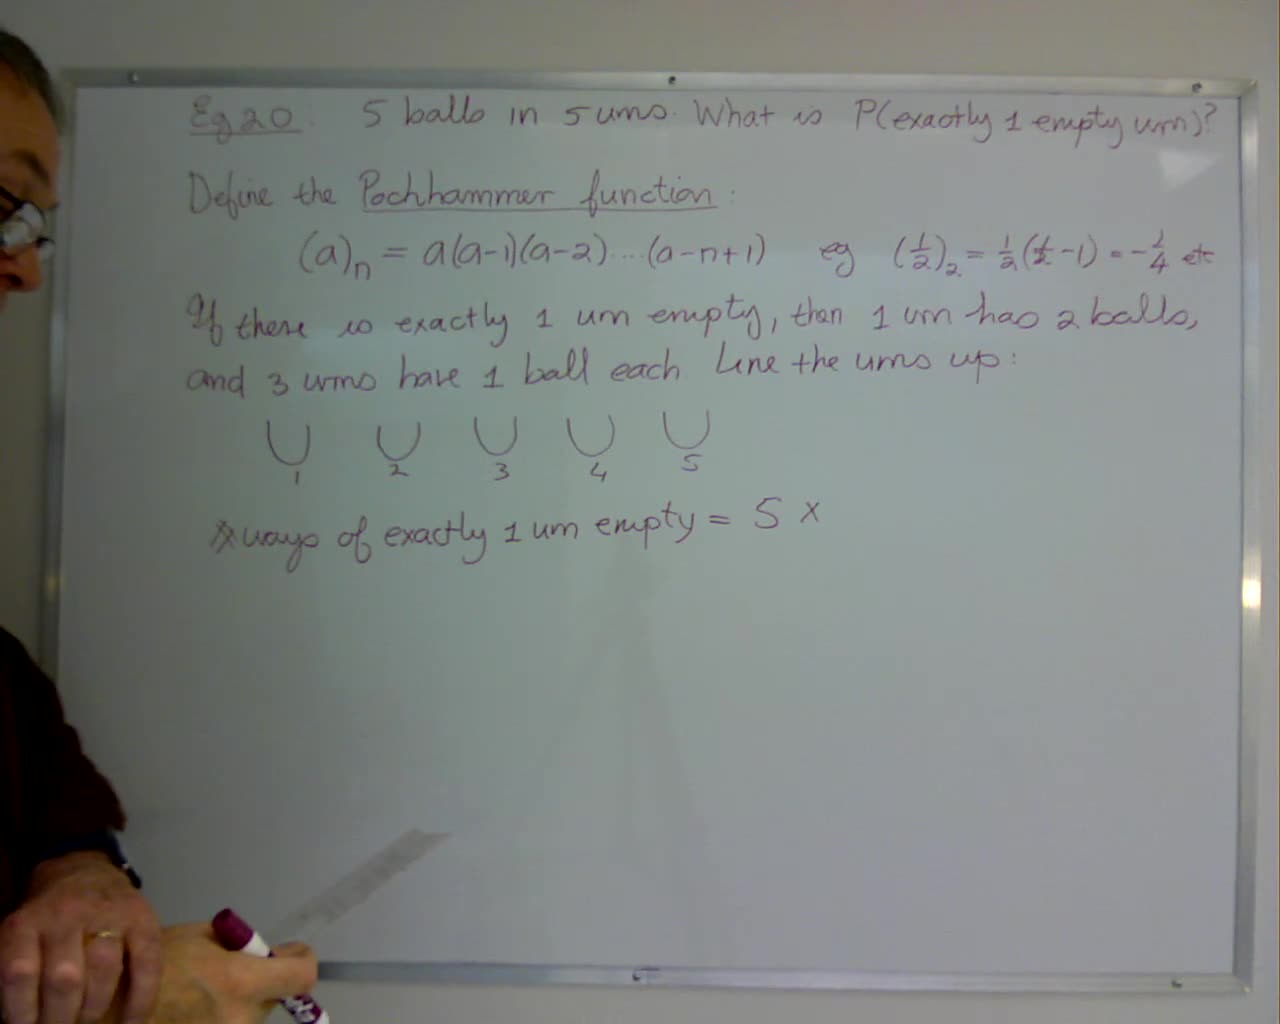 Eg 20. 5 balls in 5 urns. What is P(exactly 1 empty urn)?
Define the Pochhammer function:
(a)_n = a(a-1)(a-2)...(a-n+1) eg (1/2)_2 = 1/2(1/2-1) = -1/4 etc
If there is exactly 1 urn empty, then 1 urn has 2 balls,
and 3 urns have 1 ball each Line the urns up:
1 2 3 4 5
ways of exactly 1 urn empty = 5 ×